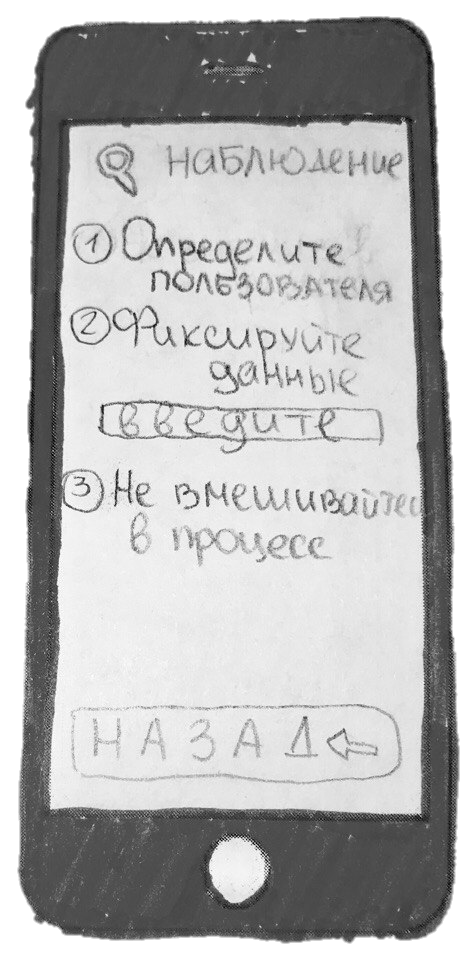 наблюдение
1 Определите
пользователя
2 Фиксируйте
данные
введите
3 Не вмешивайтесь
в процесс
НАЗАД